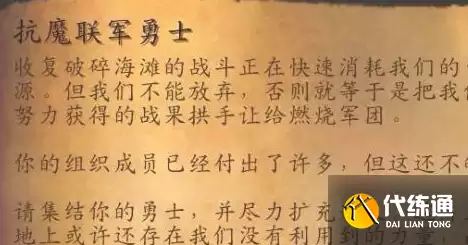 抗魔联军勇士
收复破碎海滩的战斗正在快速消耗我们的
源。但我们不能放弃，否则就等于是把我
努力获得的战果拱手让给燃烧军团。
你的组织成员已经付出了许多，但这还不
请集结你的勇士，并尽力扩充
地上或许还存在我们没有利用到的
代练通
DAI LIAN TONG